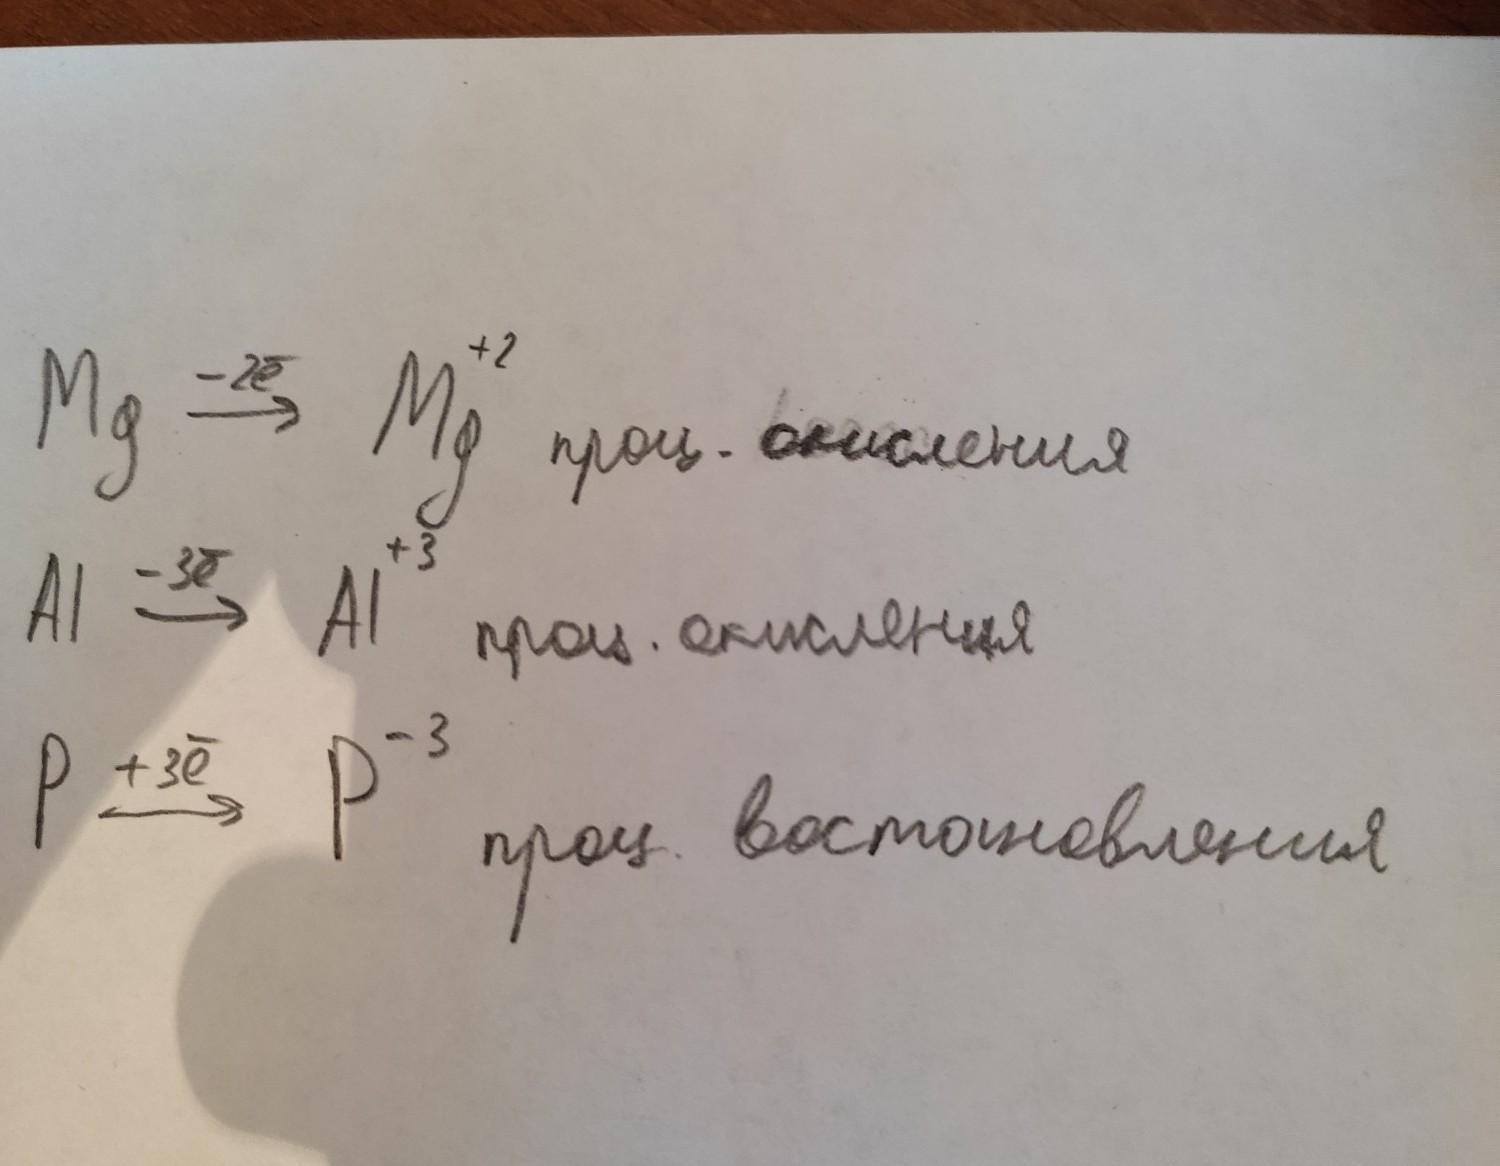 Mg -2ē → Mg +2 проц. окисления
Al -3ē → Al +3 проц. окисления
P +3ē → P -3 проц. востоновления